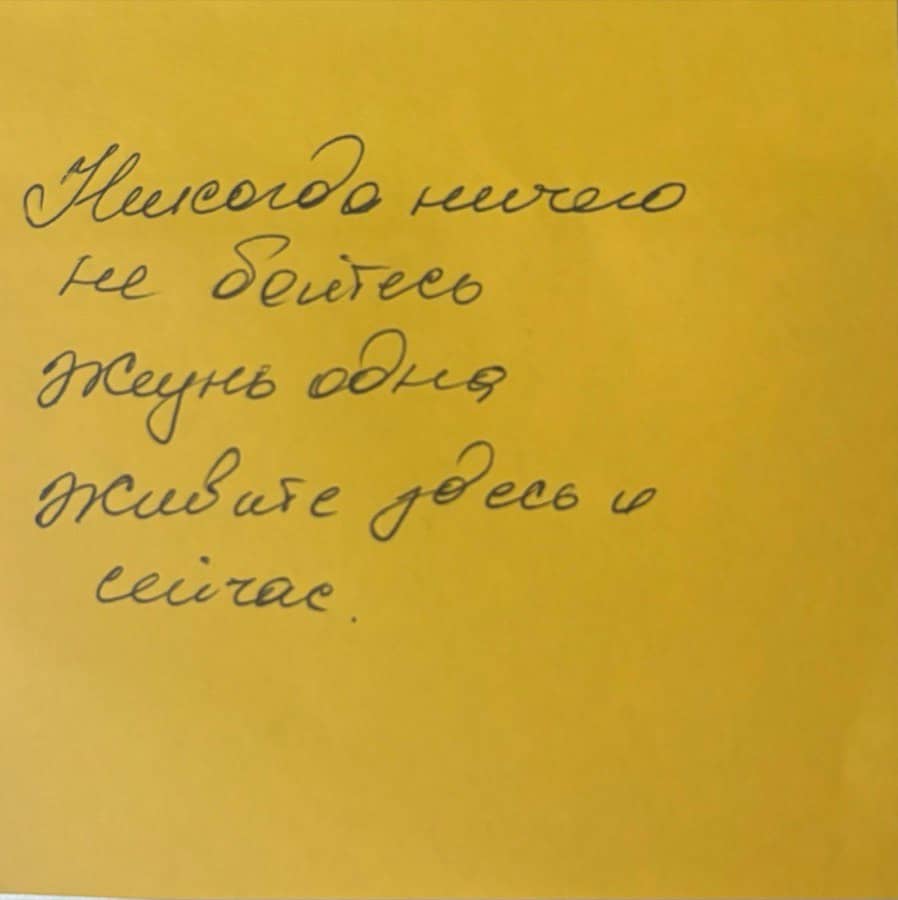 Никогда ничего
не бойтесь
жизнь одна
живите здесь и
сейчас.